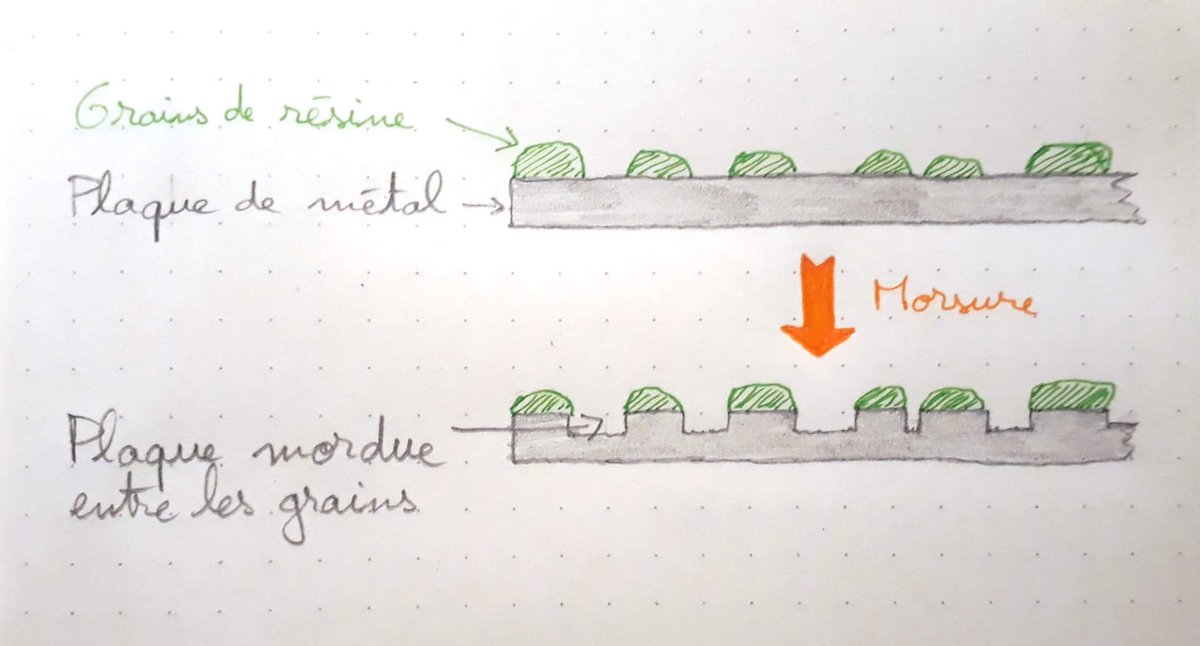 Grains de résine
Plaque de métal
Morsure
Plaque mordue
entre les grains